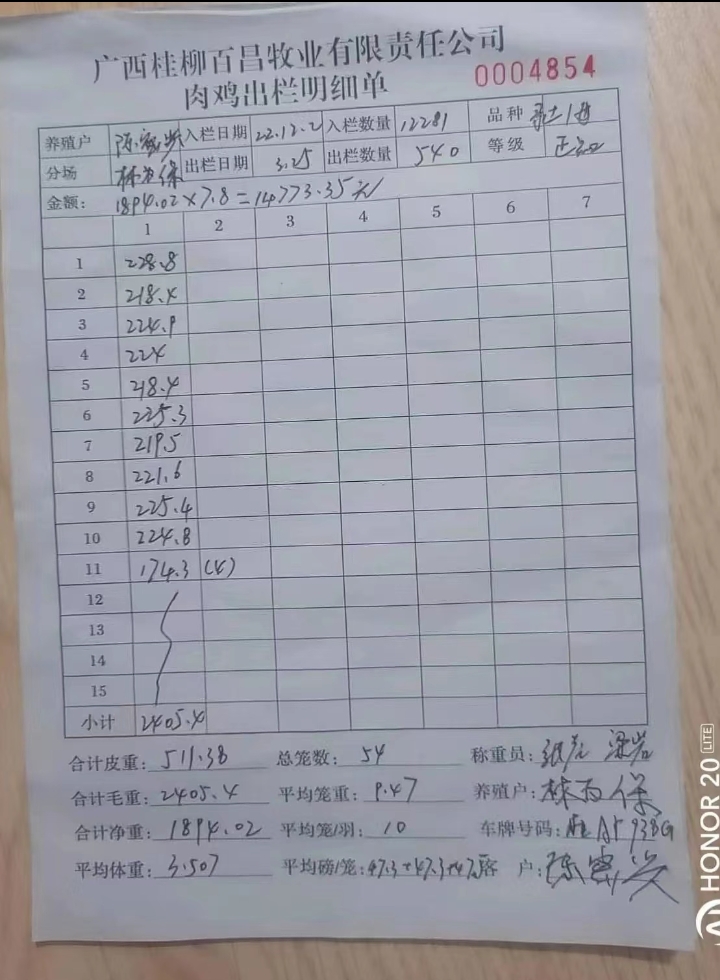 广西桂柳百昌牧业有限责任公司
肉鸡出栏明细单 0004854
养殖户 入栏日期 22.12.2 入栏数量 12281 品种
分场 出栏日期 3.25 出栏数量 540 等级
金额: 1894.02×7.8=14773.35元
1 2 3 4 5 6 7
1 228.8
2 218.4
3 224.9
4 224
5 218.4
6 225.3
7 219.5
8 221.6
9 225.4
10 224.8
11 174.3 (4)
12
13
14
15
小计 2405.4
合计皮重: 511.38 总笼数: 54 称重员:
合计毛重: 2405.4 平均笼重: 9.47 养殖户:
合计净重: 1894.02 平均笼/羽: 10 车牌号码:
平均体重: 3.507 平均磅/笼: 47.3+47.3+47 客户:
HONOR 20 LITE